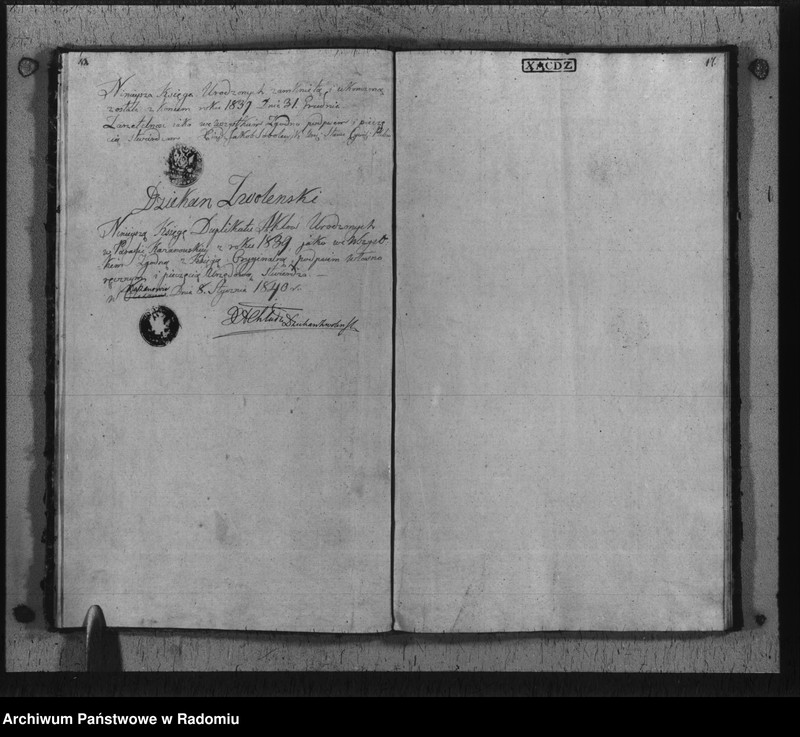 Ninieysza Księga Urodzonych zamknięta i ukończona
została z końcem roku 1839 Dnia 31 Grudnia
jako we wszystkim Zgodna podpisem i pieczę
cią stwierdzam
Dziekan Zwolenski
Ninieyszą Księgę Duplikatę Aktów Urodzonych
w Parafii z roku 1839 jako we Wszyst
kiem Zgodną z Księgą Oryginalną podpisem własno
ręcznym i pieczęcią Urzędową Stwierdza
w Dnia 8 Stycznia 1840 r.
Dziekan Zwoleński
17.
X★CDZ
Archiwum Państwowe w Radomiu